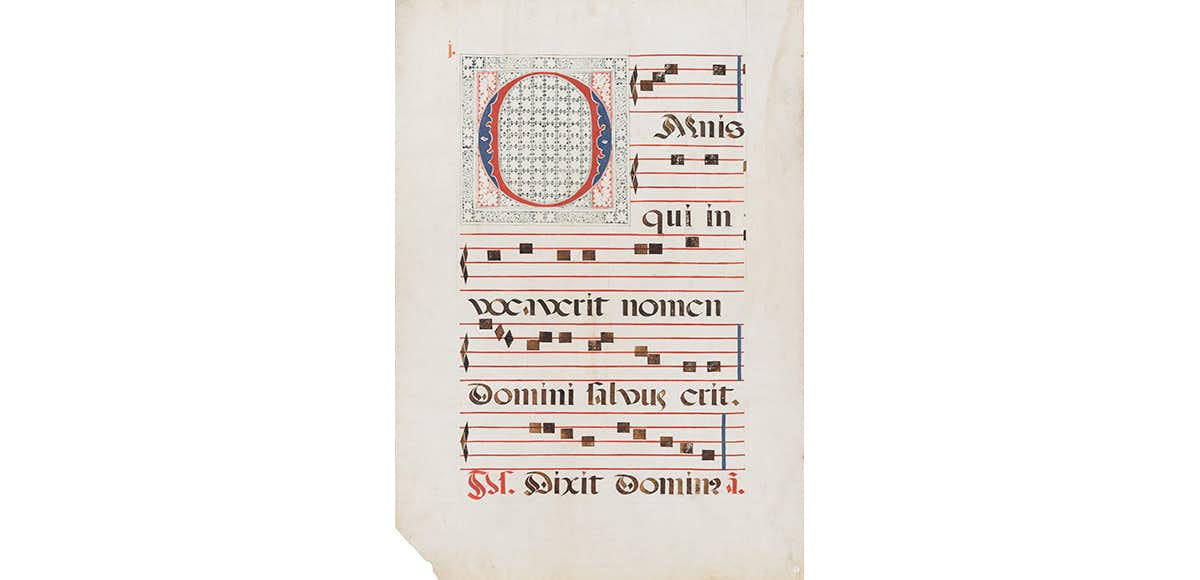 j.
OMnis
qui in
vocaverit nomen
Domini salvus erit.
Ps. Dixit Domin9 ā.